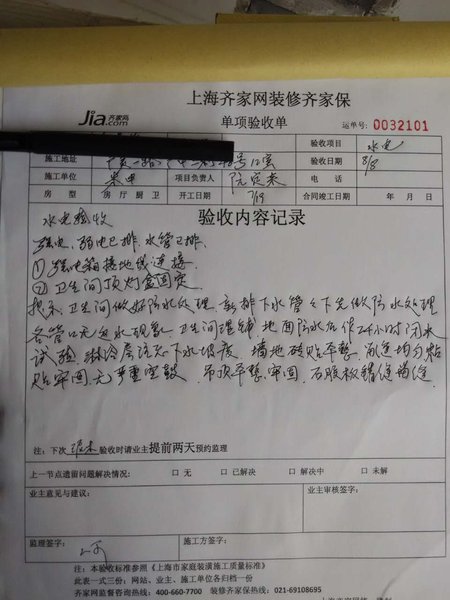 上海齐家网装修齐家保
Jia.com 齐家网
单项验收单
运单号: 0032101
验收项目 水电
施工地址 验收日期 8/8
施工单位 项目负责人 电话
房型 房厅厨卫 开工日期 7/19 合同竣工日期 年 月 日
验收内容记录
水电验收
强电、弱电已排、水管已排、
①强电箱接地线连接
②卫生间顶灯盒固定
卫生间做好防水处理、新排下水管 下先做防水处理
各管口无返水现象、卫生间 地面防水后作24小时闭水
试验 淋冷层流 下水坡度、墙地砖贴平整、 缝均匀粘
贴牢固 无严重空鼓、吊顶平整、牢固、石膏板 缝 缝
注: 下次 验收时请业主提前两天预约监理
上一节点遗留问题解决情况: □ 无 □ 已解决 □ 解决中 □ 未解
业主意见与建议: 业主审核签字:
监理签字: 施工方签字:
注: 本验收标准参照《上海市家庭装潢施工质量标准》
此表一式三份: 网站、业主、施工单位各归档一份
齐家网监督咨询热线: 400-660-7700 装修齐家保热线: 021-69108695